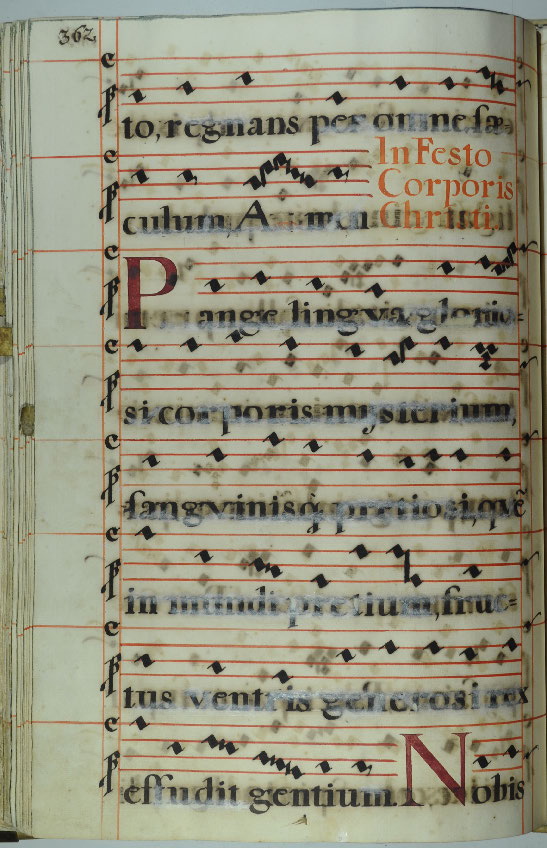 362
to, regnans per omne sæ-
culum, Amen
In Festo
Corporis
Christi,
Pange lingva glorio-
si corporis mysterium,
sangvinisq́ pretiosi, quẽ
in mundi pretium, fruc-
tus ventris generosi rex
effudit gentium. Nobis